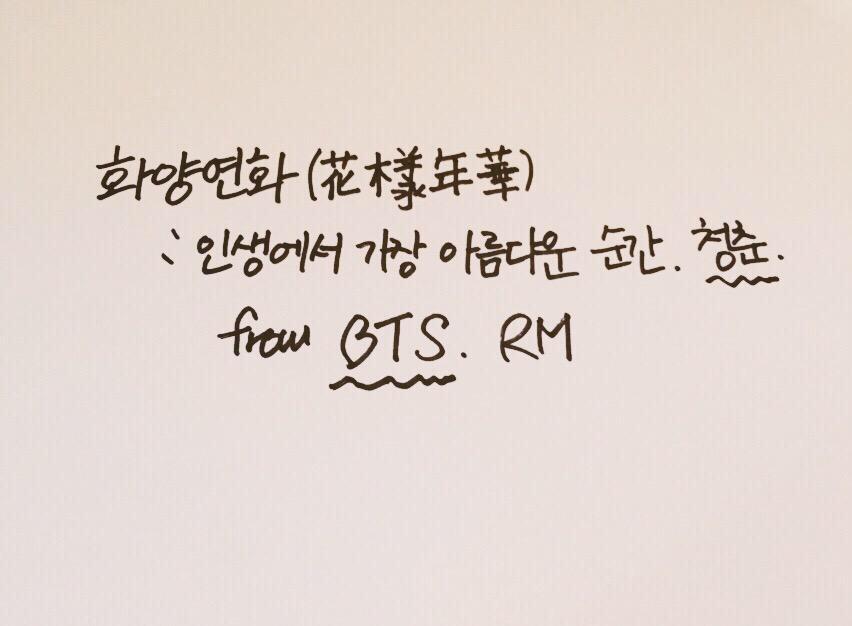 화양연화 (花樣年華)
: 인생에서 가장 아름다운 순간. 청춘.
from BTS. RM